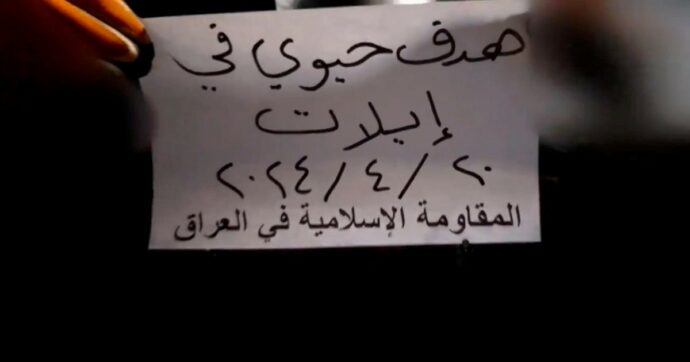 هدف حيوي في
إيلات
٢٠ / ٤ / ٢٠٢٤
المقاومة الإسلامية في العراق